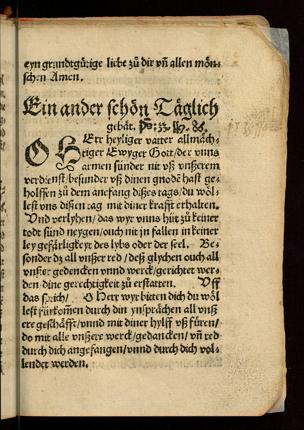 eyn grundtgütige liebe zů dir vñ allen mön-
schen Amen.
Ein ander schön Täglich
gebät.
O HErr heyliger vatter allmäch-
tiger Ewyger Gott/der vnns
armen sünder nit vß vnserem
verdienst/besunder vß dinen gnodē hast ge-
holffen zů dem anfang dißes tags/du wöl-
lest vns dißen tag mit diner krafft erhalten.
Vnd verlyhen/das wyr vnns hüt zů keiner
todt sünd neygen/ouch nit jn fallen in keiner
ley gefärligkeyt des lybs oder der seel. Be-
sonder dz all vnßer red/deß glychen ouch all
vnßer gedencken vnnd werck/gerichtet wer-
den dine gerechtigkeit zů erstatten. Vff
das sprich/ O Herr wyr bitten dich du wöl
lest fürkomen durch din ynsprächen all vnß
ere geschäfft/vnnd mit diner hylff vß fůren/
do mit alle vnßere werck/gedancken/vñ red
durch dich angefangen/vnnd durch dich vol-
lendet werden.